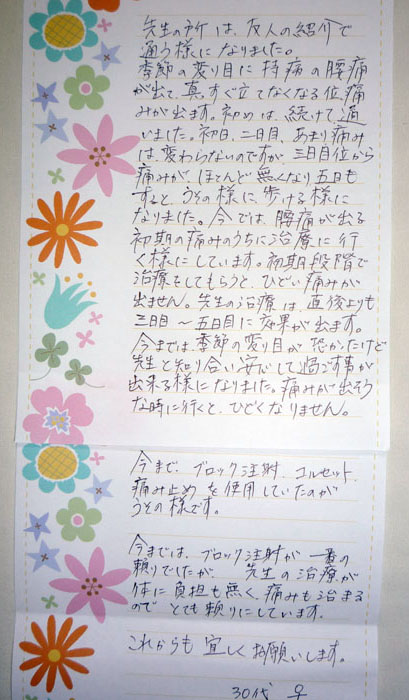 先生の所は、友人の紹介で
通う様になりました。
季節の変り目に持病の腰痛
が出て、真すぐ立てなくなる位、痛
みが出ます。初めは、続けて通
いました。初日、二日目、あまり痛み
は、変わらないのですが、三日目位から
痛みが、ほとんど無くなり五日も
すると、うその様に、歩ける様に
なりました。今では、腰痛が出る
初期の痛みのうちに治療に行
く様にしています。初期段階で
治療をしてもらうと、ひどい痛みが
出ません。先生の治療は、直後よりも
三日目〜五日目に効果が出ます。
今までは、季節の変り目が恐かったけど
先生と知り合い安心して過ごす事が
出来る様になりました。痛みが出そう
な時に行くと、ひどくなりません。
今まで、ブロック注射、コルセット、
痛み止めを使用していたのが
うその様です。
今までは、ブロック注射が一番の
頼りでしたが、先生の治療が
体に負担も無く、痛みも治まる
ので とても頼りにしています。
これからも宜しくお願いします。
30代 ♀